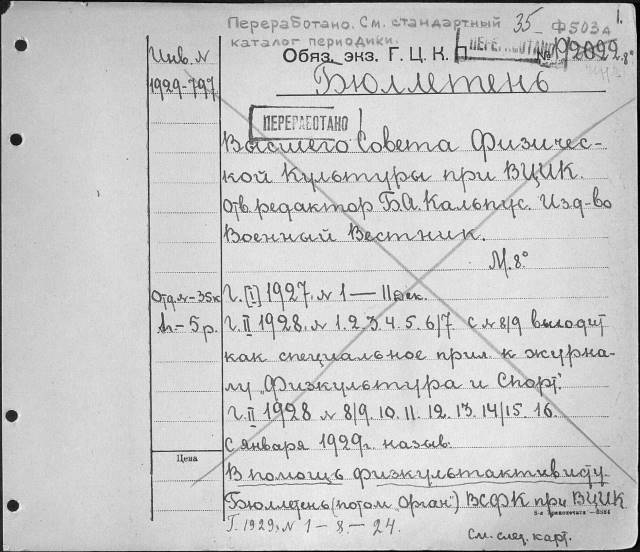 Переработано. См. стандартный 35 Ф503а 1.
каталог периодики.
ПЕРЕРАБОТАНО
Инв. №
Обяз. экз. Г. Ц. К. П. № 2099 8°
1929-797
Бюллетень
ПЕРЕРАБОТАНО
Высшего Совета Физичес-
кой Культуры при ВЦИК.
Отв. редактор Б.А. Кальпус. Изд-во
Военный Вестник.
М. 8°
Отд. №-35к
г. [I] 1927. № 1 — 11 дек.
ц - 5 р.
г. II 1928. № 1. 2. 3. 4. 5. 6/7 с № 8/9 выходит
как специальное прил. к журна-
лу „Физкультура и Спорт".
г. II 1928 № 8/9. 10. 11. 12. 13. 14/15. 16.
с января 1929 г. назыв.
Цена
В помощь физкультактивисту.
Бюллетень (потом „Орган") ВСФК при ВЦИК
Г. 1929. № 1 — 8 — 24.
См. след. карт.